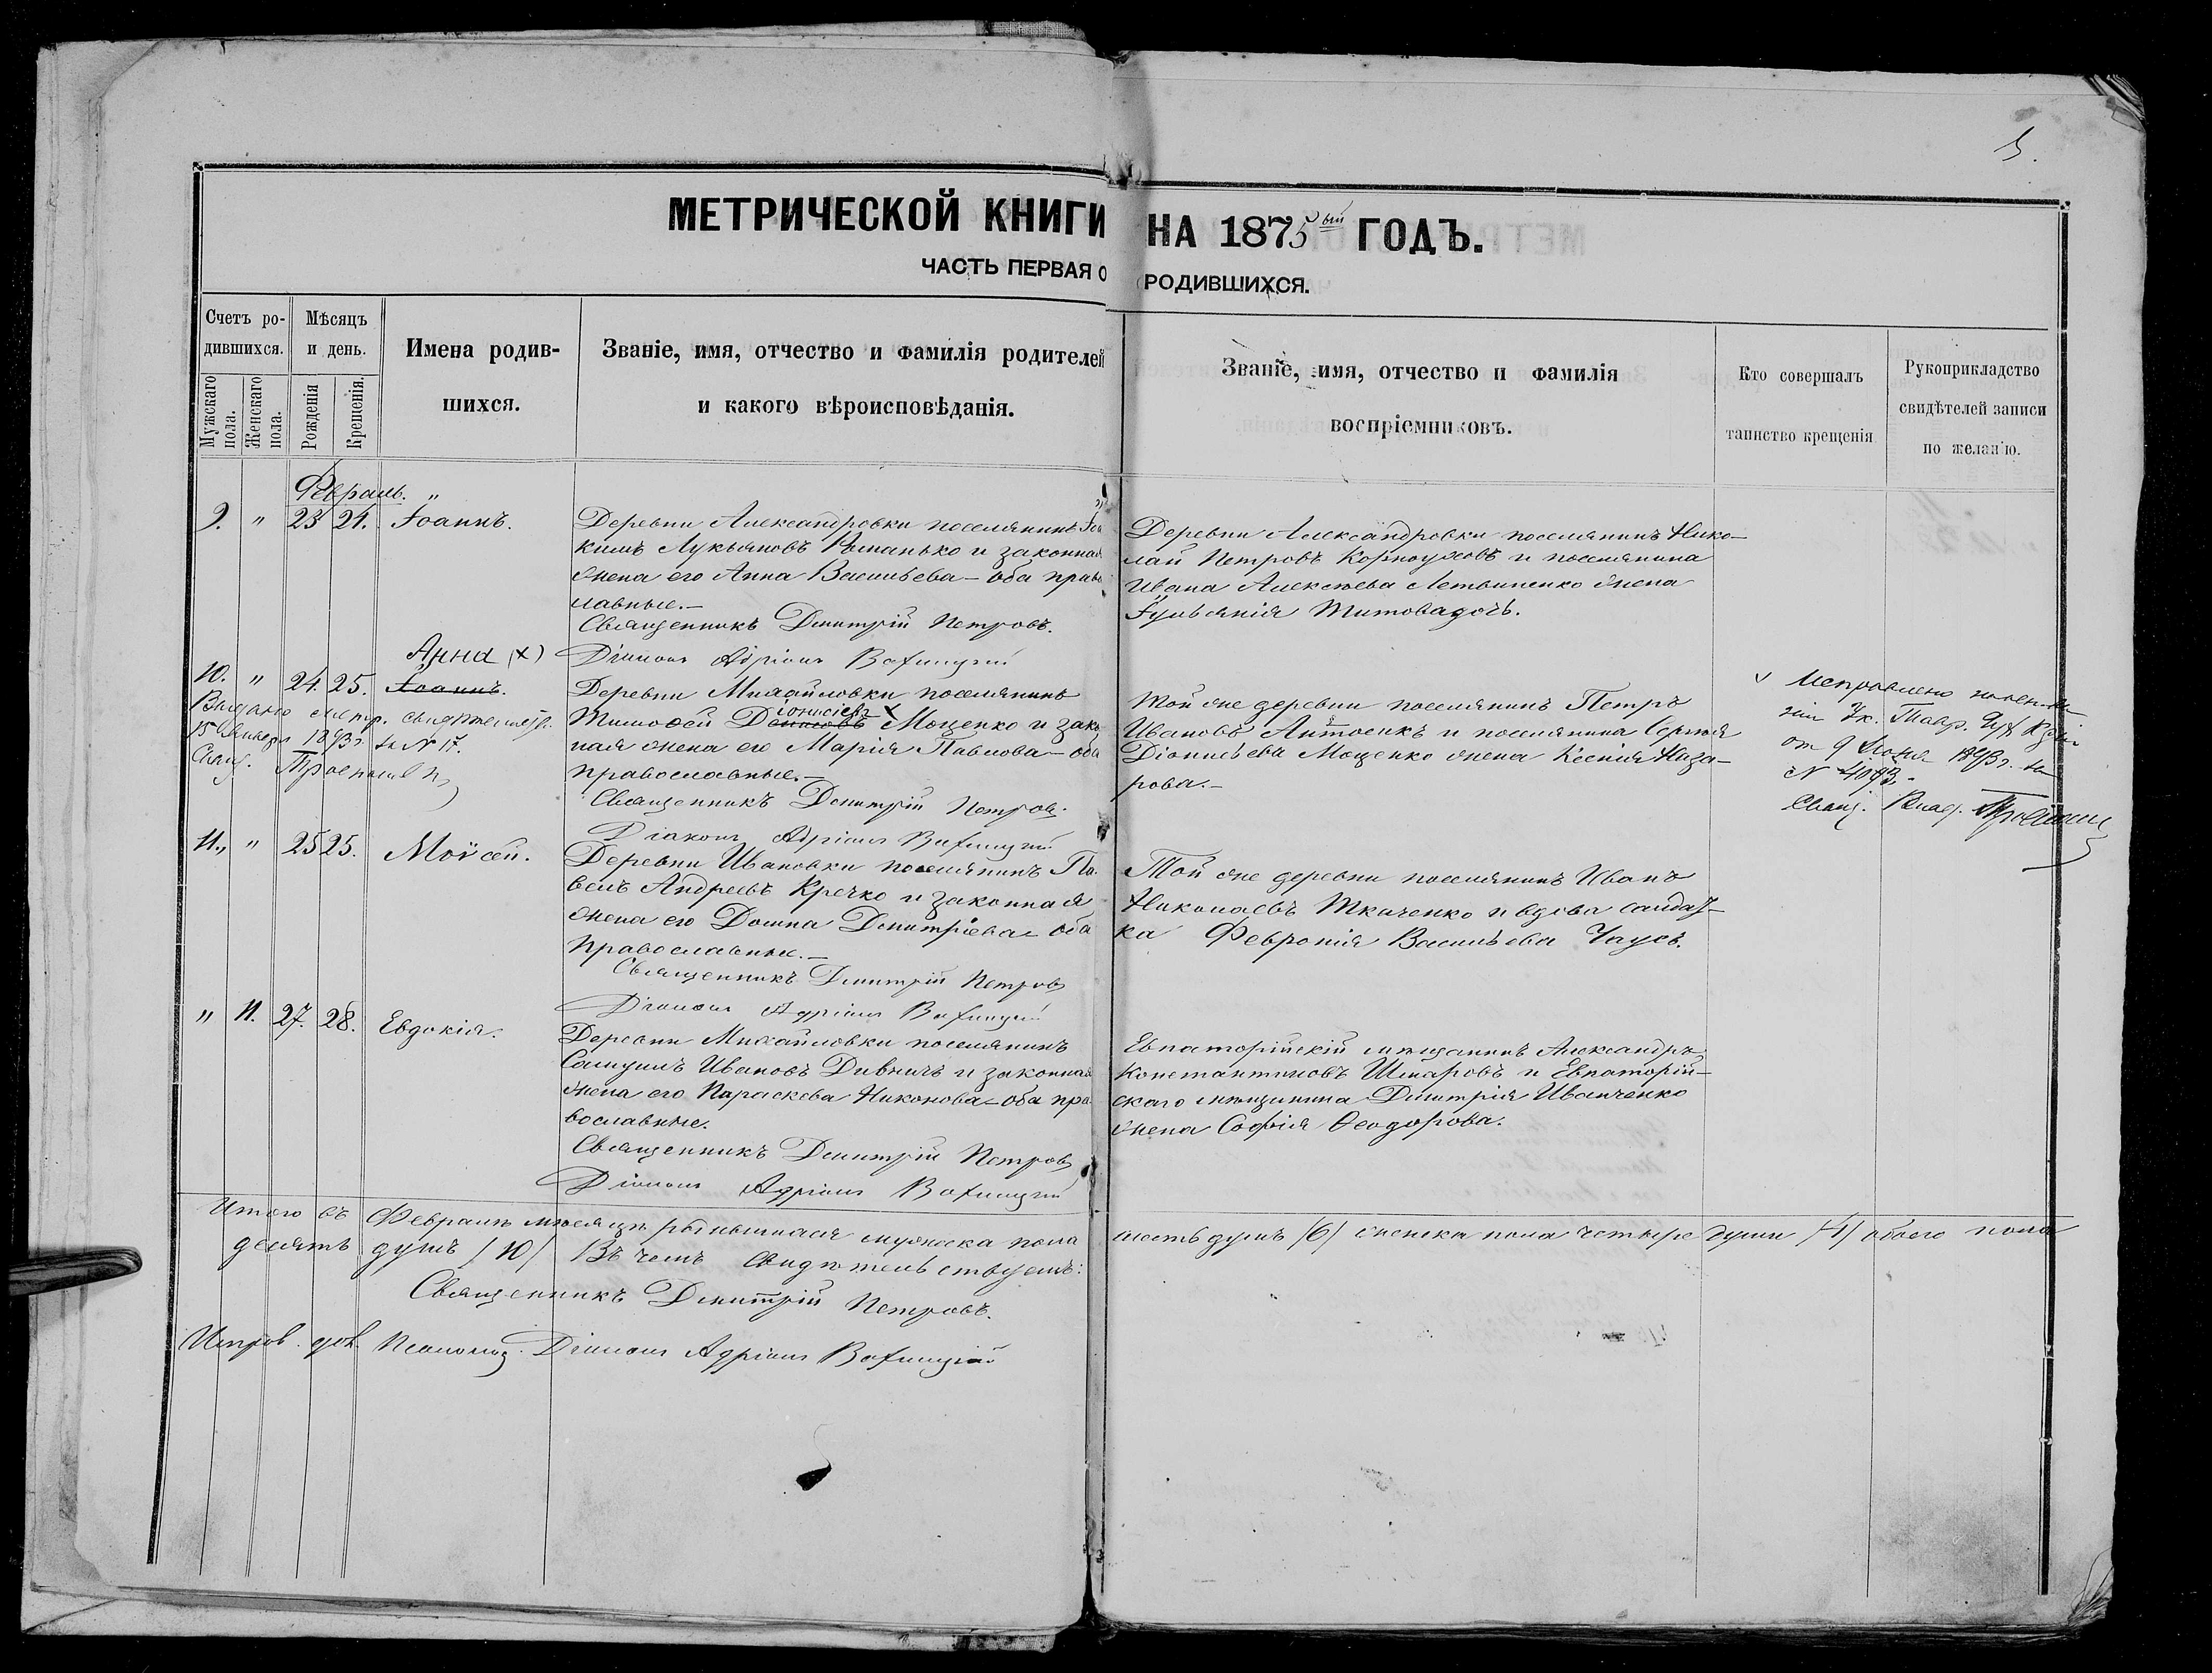 5.
МЕТРИЧЕСКОЙ КНИГИ НА 1875ый ГОДЪ.
ЧАСТЬ ПЕРВАЯ О РОДИВШИХСЯ.
Счетъ ро-
дившихся.
Мужскаго пола.
Женскаго пола.
Мѣсяцъ
и день.
Рожденія
Крещенія.
Имена родив-
шихся.
Званіе, имя, отчество и фамилія родителей
и какого вѣроисповѣданія.
Званіе, имя, отчество и фамилія
воспріемниковъ.
Кто совершалъ
таинство крещенія
Рукоприкладство
свидѣтелей записи
по желанію.
Февраль. "
9. " 23 24. Іоаннъ.
Деревни Александровки поселянинъ Іоа
кимъ Лукьяновъ Романько и законная
жена его Анна Васильева – оба право
славные. –
Священникъ Димитрій Петровъ.
Діаконъ Адріанъ
Деревни Александровки поселянинъ Нико–
лай Петровъ Корноуховъ и поселянина
Ивана Алексѣева Летвиненко жена
Іульянія Титова дочь.
Анна (х)
10. " 24. 25. Іоаннъ.
Выдано метр. свидѣтельст.
15 Января 1893 г. за № 17.
Свящ.
Деревни Михайловки поселянинъ
Тимофей Денисовъ іонисіевъ х Моценко и зако
ная жена его Марія Павлова – оба
православные. –
Священникъ Димитрій Петровъ.
Діаконъ Адріанъ
Той же деревни поселянинъ Петръ
Ивановъ Антоенкъ и поселянина Сергія
Діонисьева Моценко жена Ксенія Наза–
рова. –
v Исправлено
Ук. Тавр. Дух. К
от 9 1893 г. за
№ 4093.
Свящ. Влад.
11. " 25 25. Моѵсей.
Деревни Ивановки поселянинъ Па
велъ Андреевъ Кречко и законная
жена его Домна Димитріева – оба
православные. –
Священникъ Димитрій Петровъ
Діаконъ Адріанъ
Той же деревни поселянинъ Иванъ
Николаевъ Ткаченко и вдова солдат–
ка Февронія Васильева Чаусъ.
" 11. 27. 28. Евдокія.
Деревни Михайловки поселянинъ
Самуилъ Ивановъ Дивничъ и законная
жена его Параскева Никонова – оба пра
вославные.
Священникъ Димитрій Петровъ
Діаконъ Адріанъ
Евпаторійскій мѣщанинъ Александръ
Константиновъ Шмаровъ и Евпаторій–
скаго мѣщанина Димитрія Иванченко
жена Софія Ѳеодорова.
Итого въ Февралѣ мѣсяцѣ родившихся мужеска пола шесть душъ /6/ женска пола четыре души /4/ обоего пола
десять душъ /10/ Въ чемъ свидѣтельствуемъ:
Священникъ Димитрій Петровъ.
Исправ. дол. Псаломщ. Діаконъ Адріанъ